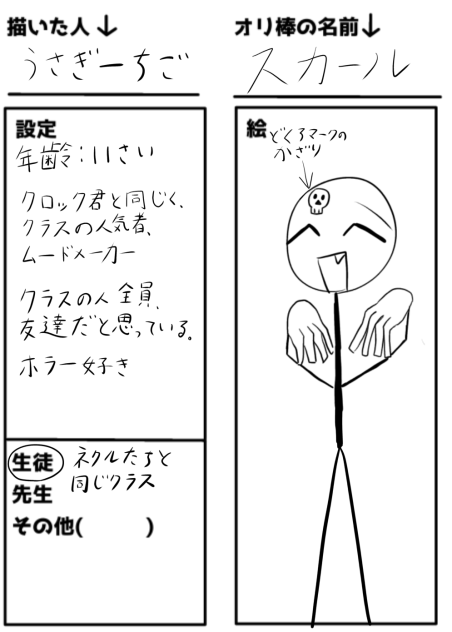 描いた人↓
うさぎーちご
オリ棒の名前↓
スカール
設定
年齢:11さい
クロック君と同じく、
クラスの人気者、
ムードメーカー
クラスの人全員、
友達だと思っている。
ホラー好き
生徒
先生
その他( )
ネクルたちと
同じクラス
絵
どくろマークの
かざり